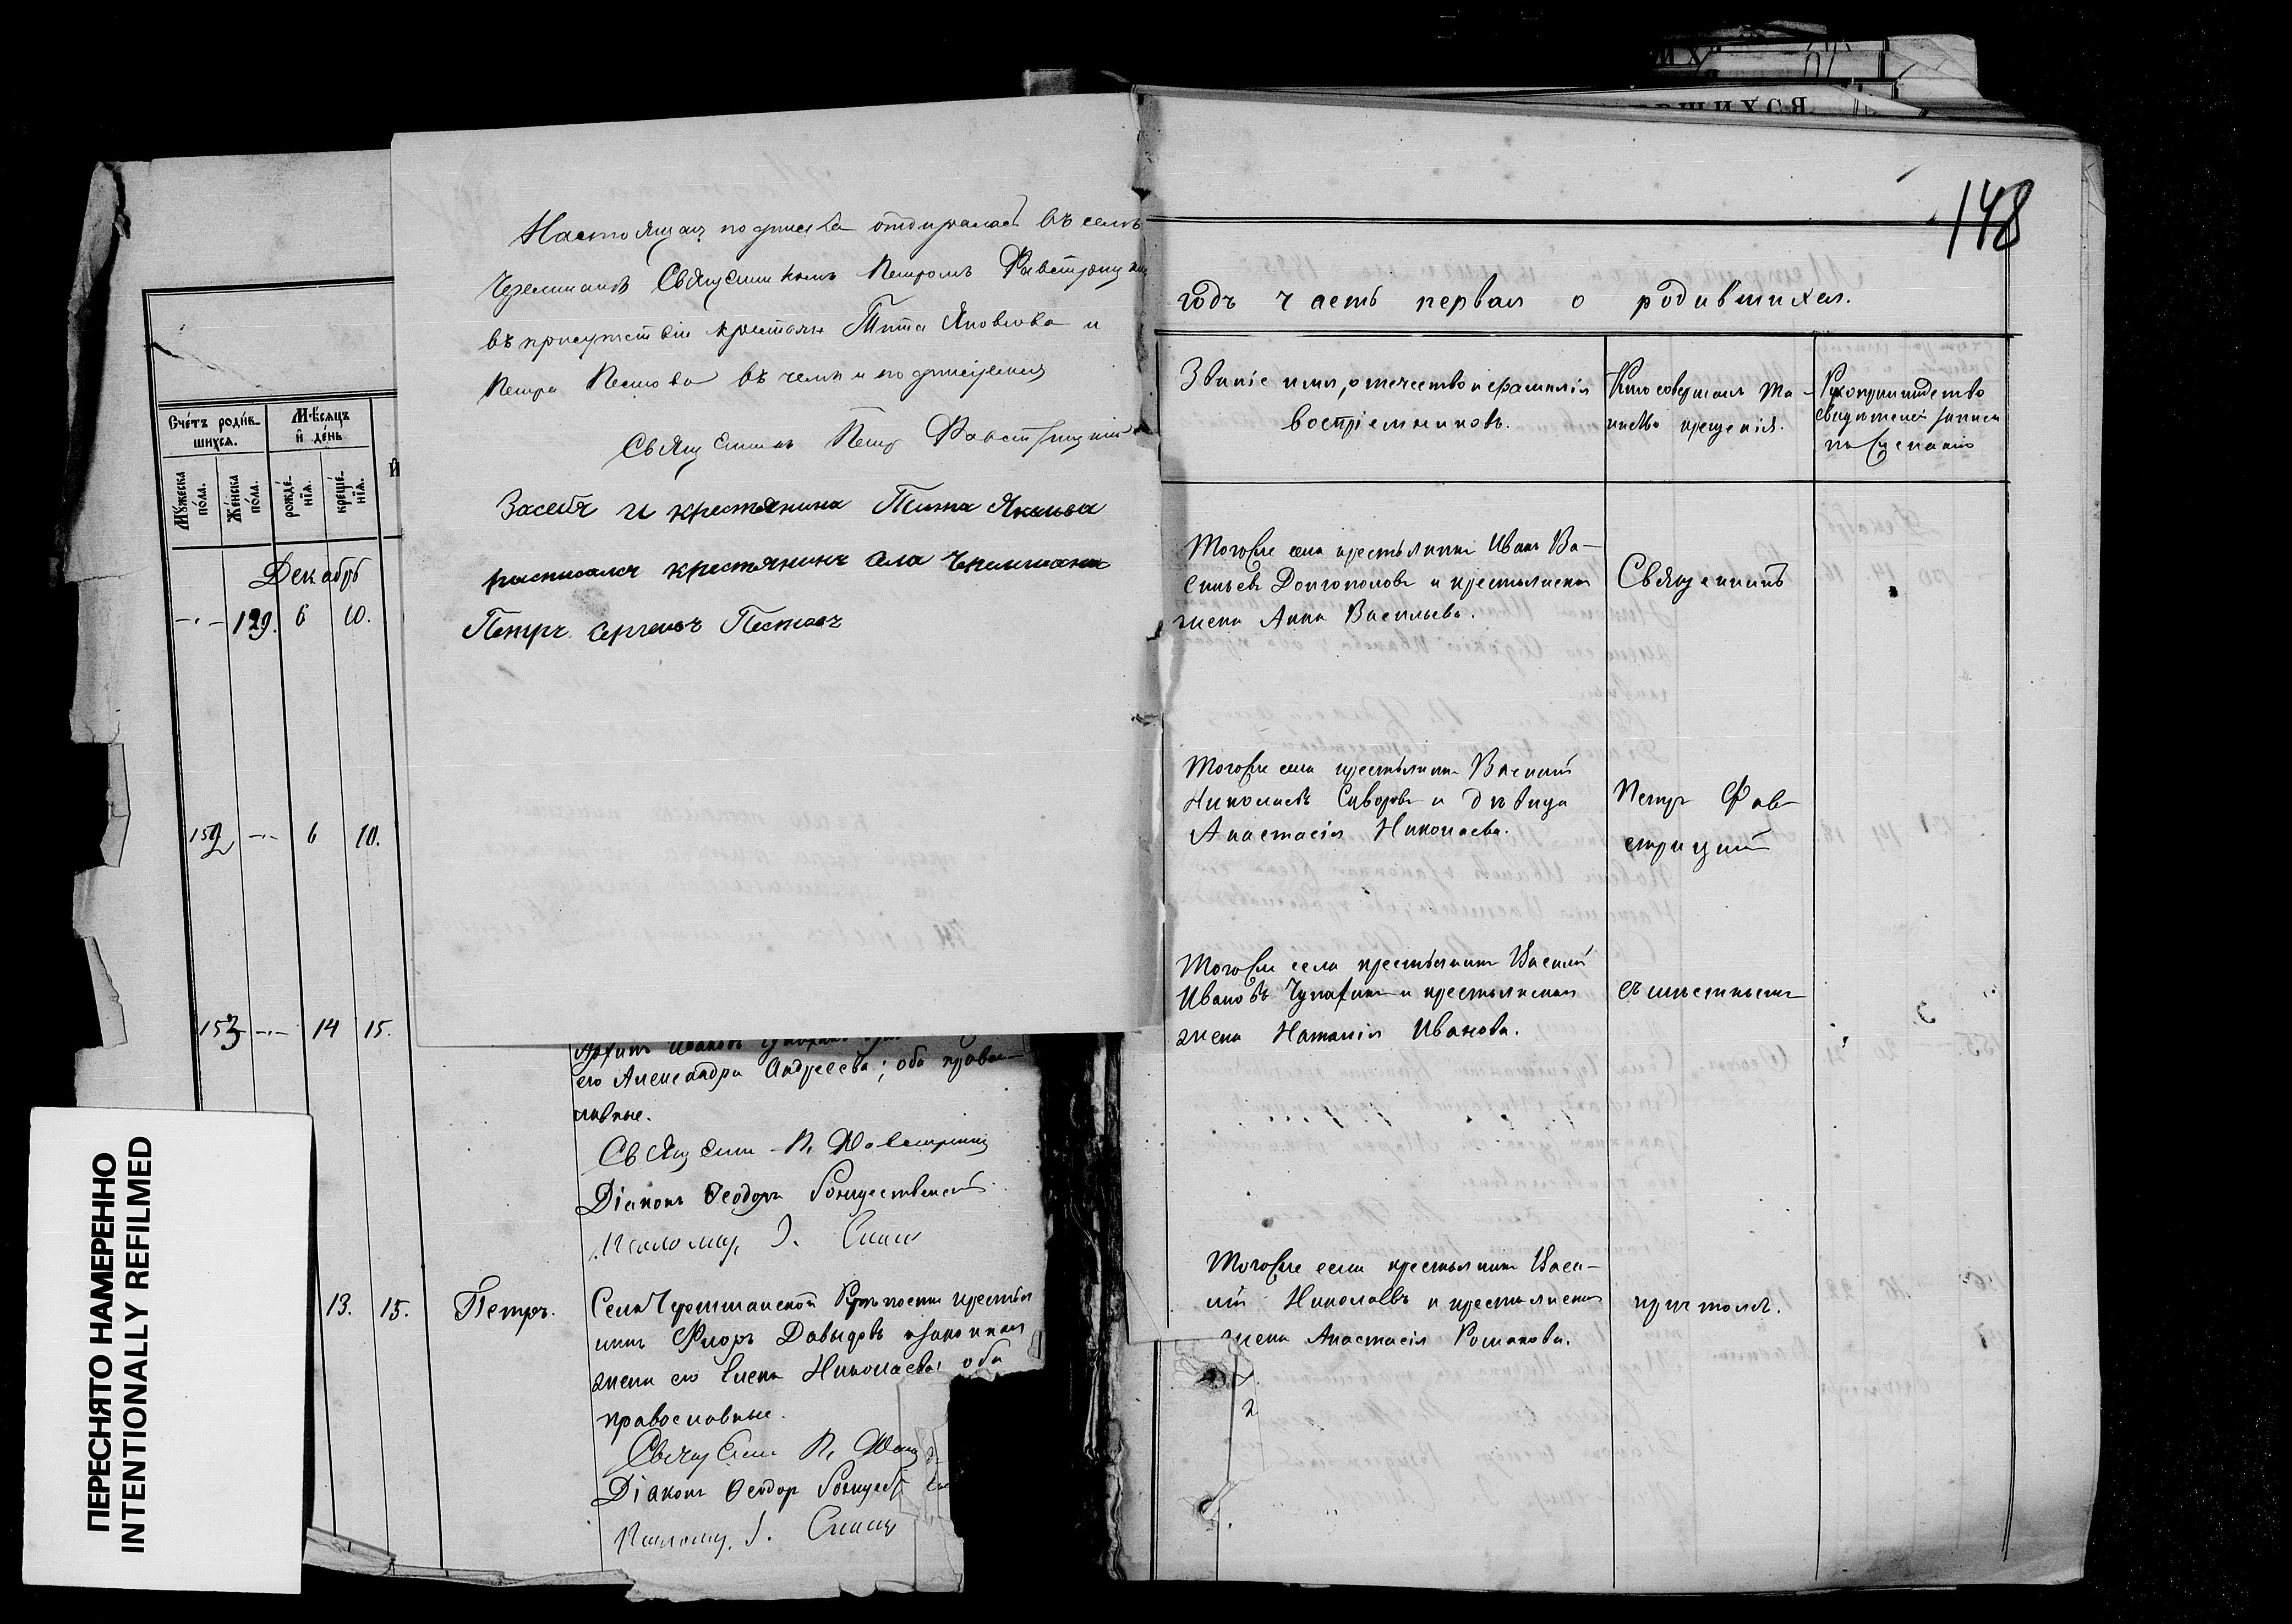 148
Настоящая подписка отбиралась въ селѣ
Черемшанѣ Священникомъ Петромъ Фавстрицки
въ присутствіи крестьян Тита Яковлева и
Петра Пестова въ чемъ и подписуемся
Священникъ Петр Фавстрицкій
За себя и крестьянина Тита Якольва
расписался крестьянинъ села Черемшана
Петръ Сергеевъ Пестовъ
Счéтъ роди́в-
шихся.
Мѣ́сяцъ
и҆ де́нь
Мꙋ́жеска
по́ла.
Же́нска
по́ла.
рожде́-
нїѧ.
креще́-
нїѧ.
Декабрь
-·- 129. 6 10.
152 -·- 6 10.
153 -·- 14 15.
Архипъ Ивановъ
его Александра Андреева; оба право-
славные.
Священ П.
Діаконъ Ѳеодоръ Рождественскій
Псаломщ. І.
13. 15. Петръ. Села Черемшанской Крѣпости крестья
нинъ Флоръ Давыдовъ и законная
жена его Елена Николаева, оба
православные.
Священ П.
Діаконъ Ѳеодор Рождест
Псаломщ. І.
годъ часть первая о родившихся.
Званіе имя, отечество и фамилія
воспріемниковъ.
Кто совершалъ та-
инство крещенія.
Рукоприкладство
свидѣтелей записи
по желанію
Тогоже села крестьянинъ Иванъ Ва-
сильевъ Долгополовъ и крестьянская
жена Анна Васильева.
Священникъ
Тогоже села крестьянинъ Василій
Николаевъ Суворовъ и дѣвица
Анастасія Николаева.
Петръ Фав-
стрицкій
Тогоже села крестьянинъ Василій
Ивановъ Чукаринъ и крестьянская
жена Наталія Иванова.
съ мѣстнымъ
Тогоже села крестьянинъ Васи-
лій Николаевъ и крестьянская
жена Анастасія Романова.
причтомъ.
ПЕРЕСНЯТО НАМЕРЕННО
INTENTIONALLY REFILMED